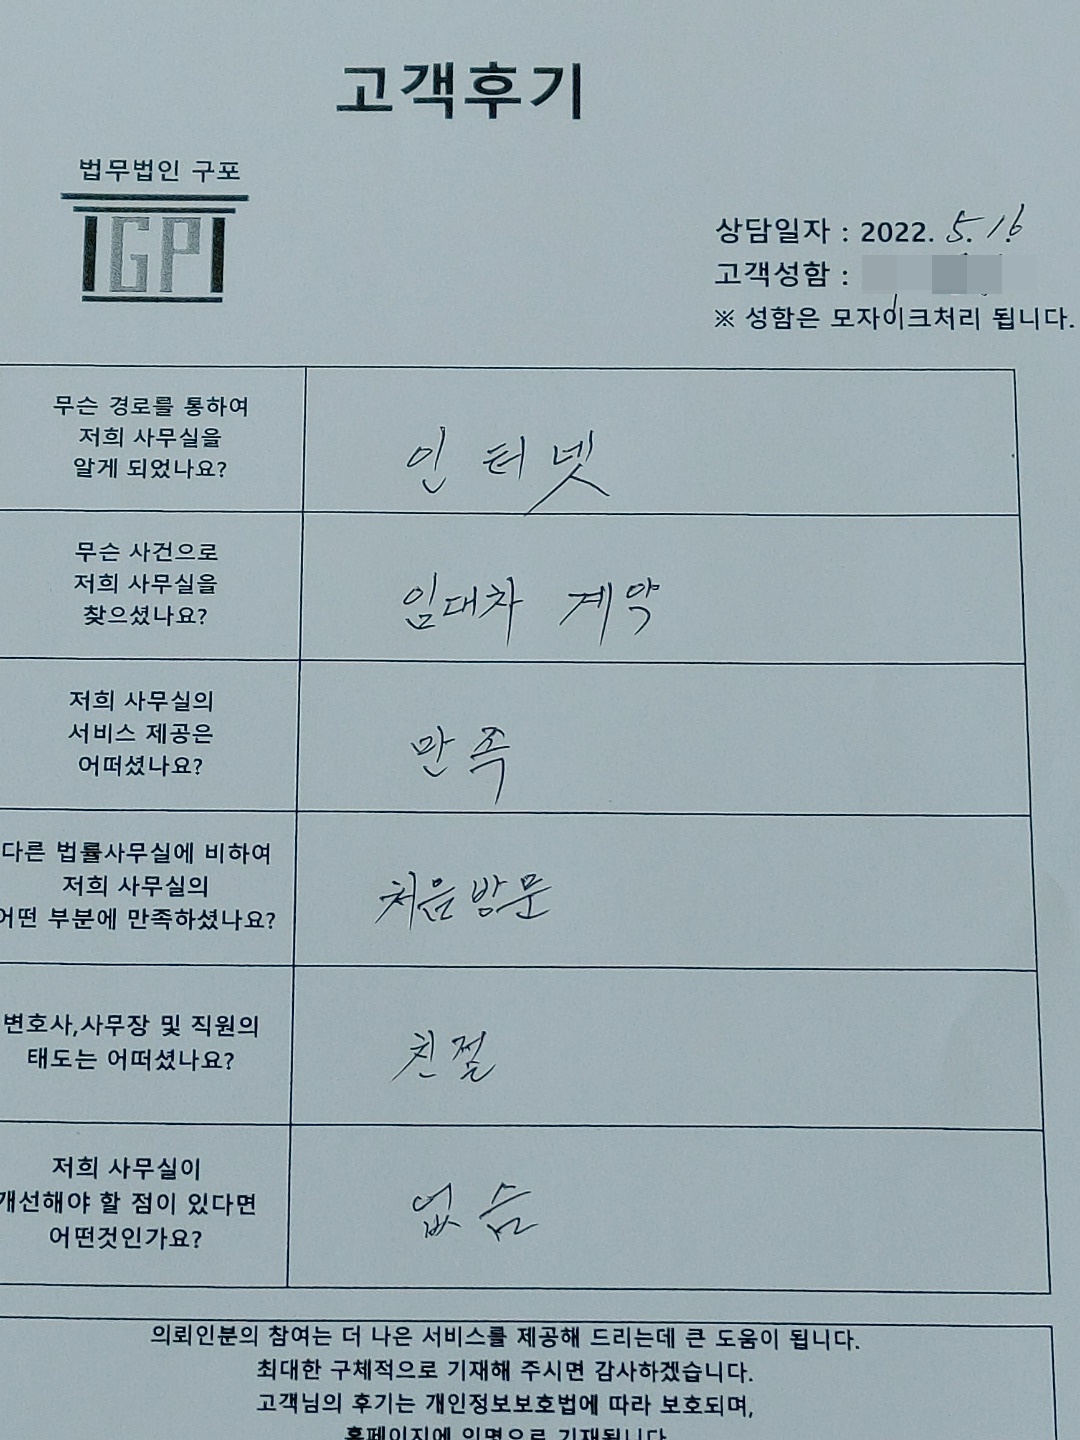 고객후기
법무법인 구포
IGPI
상담일자 : 2022. 5. 16
고객성함 :
※ 성함은 모자이크처리 됩니다.
무슨 경로를 통하여
저희 사무실을
알게 되었나요?
인터넷
무슨 사건으로
저희 사무실을
찾으셨나요?
임대차 계약
저희 사무실의
서비스 제공은
어떠셨나요?
만족
다른 법률사무실에 비하여
저희 사무실의
어떤 부분에 만족하셨나요?
처음방문
변호사,사무장 및 직원의
태도는 어떠셨나요?
친절
저희 사무실이
개선해야 할 점이 있다면
어떤것인가요?
없음
의뢰인분의 참여는 더 나은 서비스를 제공해 드리는데 큰 도움이 됩니다.
최대한 구체적으로 기재해 주시면 감사하겠습니다.
고객님의 후기는 개인정보보호법에 따라 보호되며,
홈페이지에 익명으로 기재됩니다